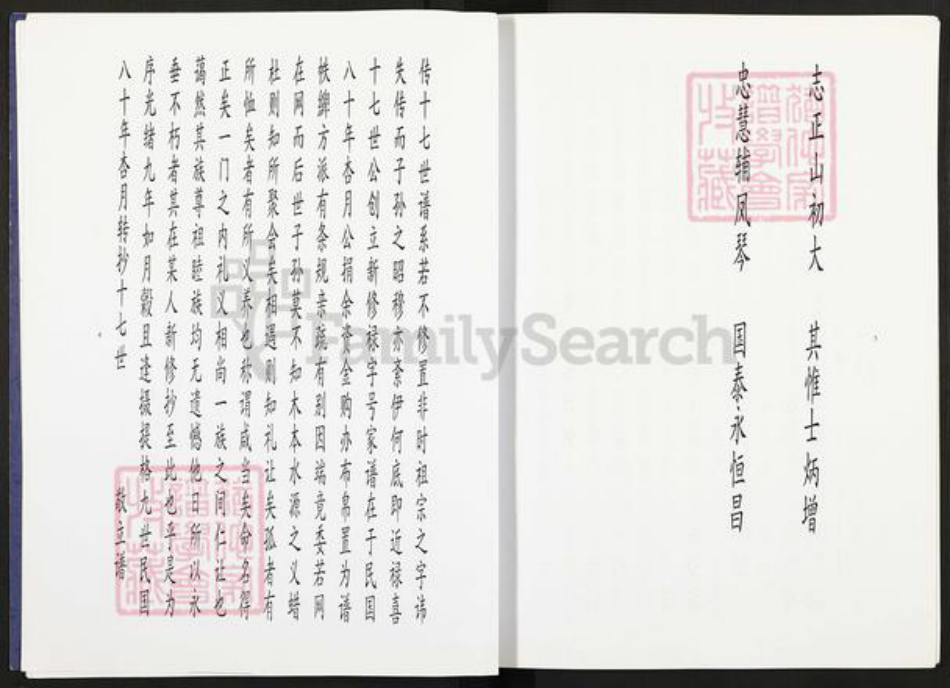 志正山初大 其惟士炳增
忠慧辅凤琴 国泰永恒昌
传十七世谱系若不修置非时祖宗之字讳
失传而子孙之昭穆亦紊伊何底即近禄喜
十七世公创立新修禄字号家谱在于民国
八十年杏月公捐余资金购办布帛置为谱
帙缏方派有条规亲疏有别因端竟委若网
在网而后世子孙莫不知木本水源之义蜡
杜则知所聚会矣相遇则知礼让矣孤者有
所恤矣者有所义养也称谓咸当矣命名得
正矣一门之内礼义相尚一族之间仁让也
蔼然其族尊祖睦族均无遗憾他日所以永
垂不朽者其在某人新修抄至此也乎是为
序光绪九年如月谷且逢摄提格九世民国
八十年杏月转抄十七世 敬立谱
FamilySearch